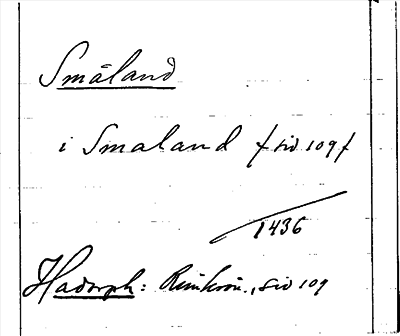 Småland
i Smaland /sid 109/
1436
Hadorph: Rimkrön., sid 109